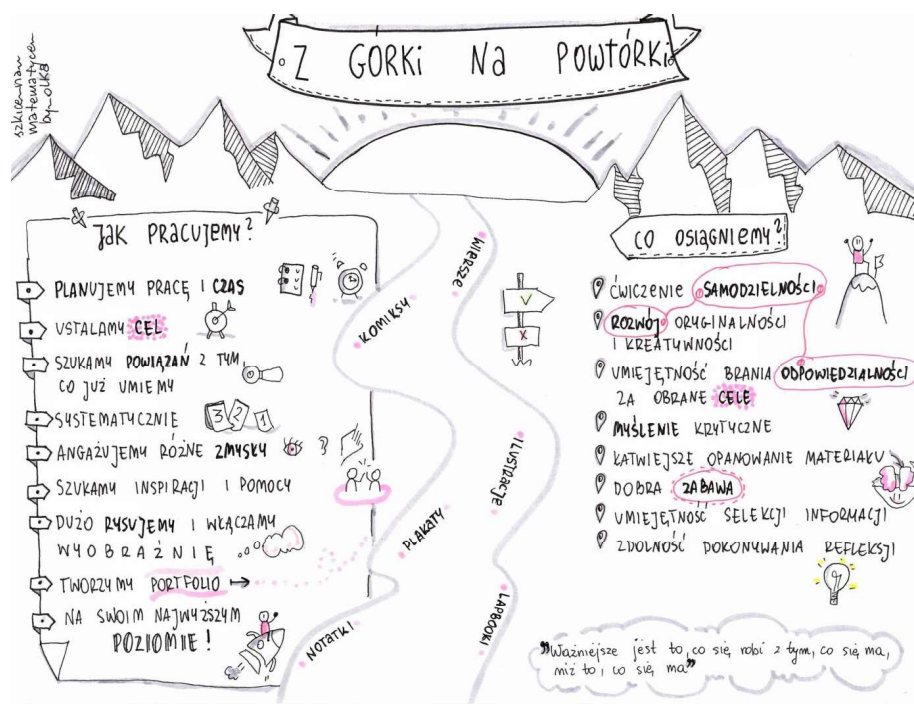 szkicownam
matematycem
by-olka
Z GÓRKI NA POWTÓRKI
JAK PRACUJEMY?
PLANUJEMY PRACĘ I CZAS
USTALAMY CEL
SZUKAMY POWIĄZAŃ Z TYM,
CO JUŻ UMIEMY
SYSTEMATYCZNIE
3 2 1
ANGAŻUJEMY RÓŻNE ZMYSŁY
SZUKAMY INSPIRACJI I POMOCY
DUŻO RYSUJEMY I WŁĄCZAMY
WYOBRAŹNIĘ
TWORZYMY PORTFOLIO
NA SWOIM NAJWYŻSZYM
POZIOMIE!
WIERSZE
KOMIKSY
ILUSTRACJE
PLAKATY
LAPBOOKI
NOTATKI
V
X
CO OSIĄGNIEMY?
ĆWICZENIE SAMODZIELNOŚCI
ROZWÓJ ORYGINALNOŚCI
I KREATYWNOŚCI
UMIEJĘTNOŚĆ BRANIA ODPOWIEDZIALNOŚCI
ZA OBRANE CELE
MYŚLENIE KRYTYCZNE
ŁATWIEJSZE OPANOWANIE MATERIAŁU
DOBRA ZABAWA
UMIEJĘTNOŚĆ SELEKCJI INFORMACJI
ZDOLNOŚĆ DOKONYWANIA REFLEKSJI
"Ważniejsze jest to, co się robi z tym, co się ma,
niż to, co się ma"